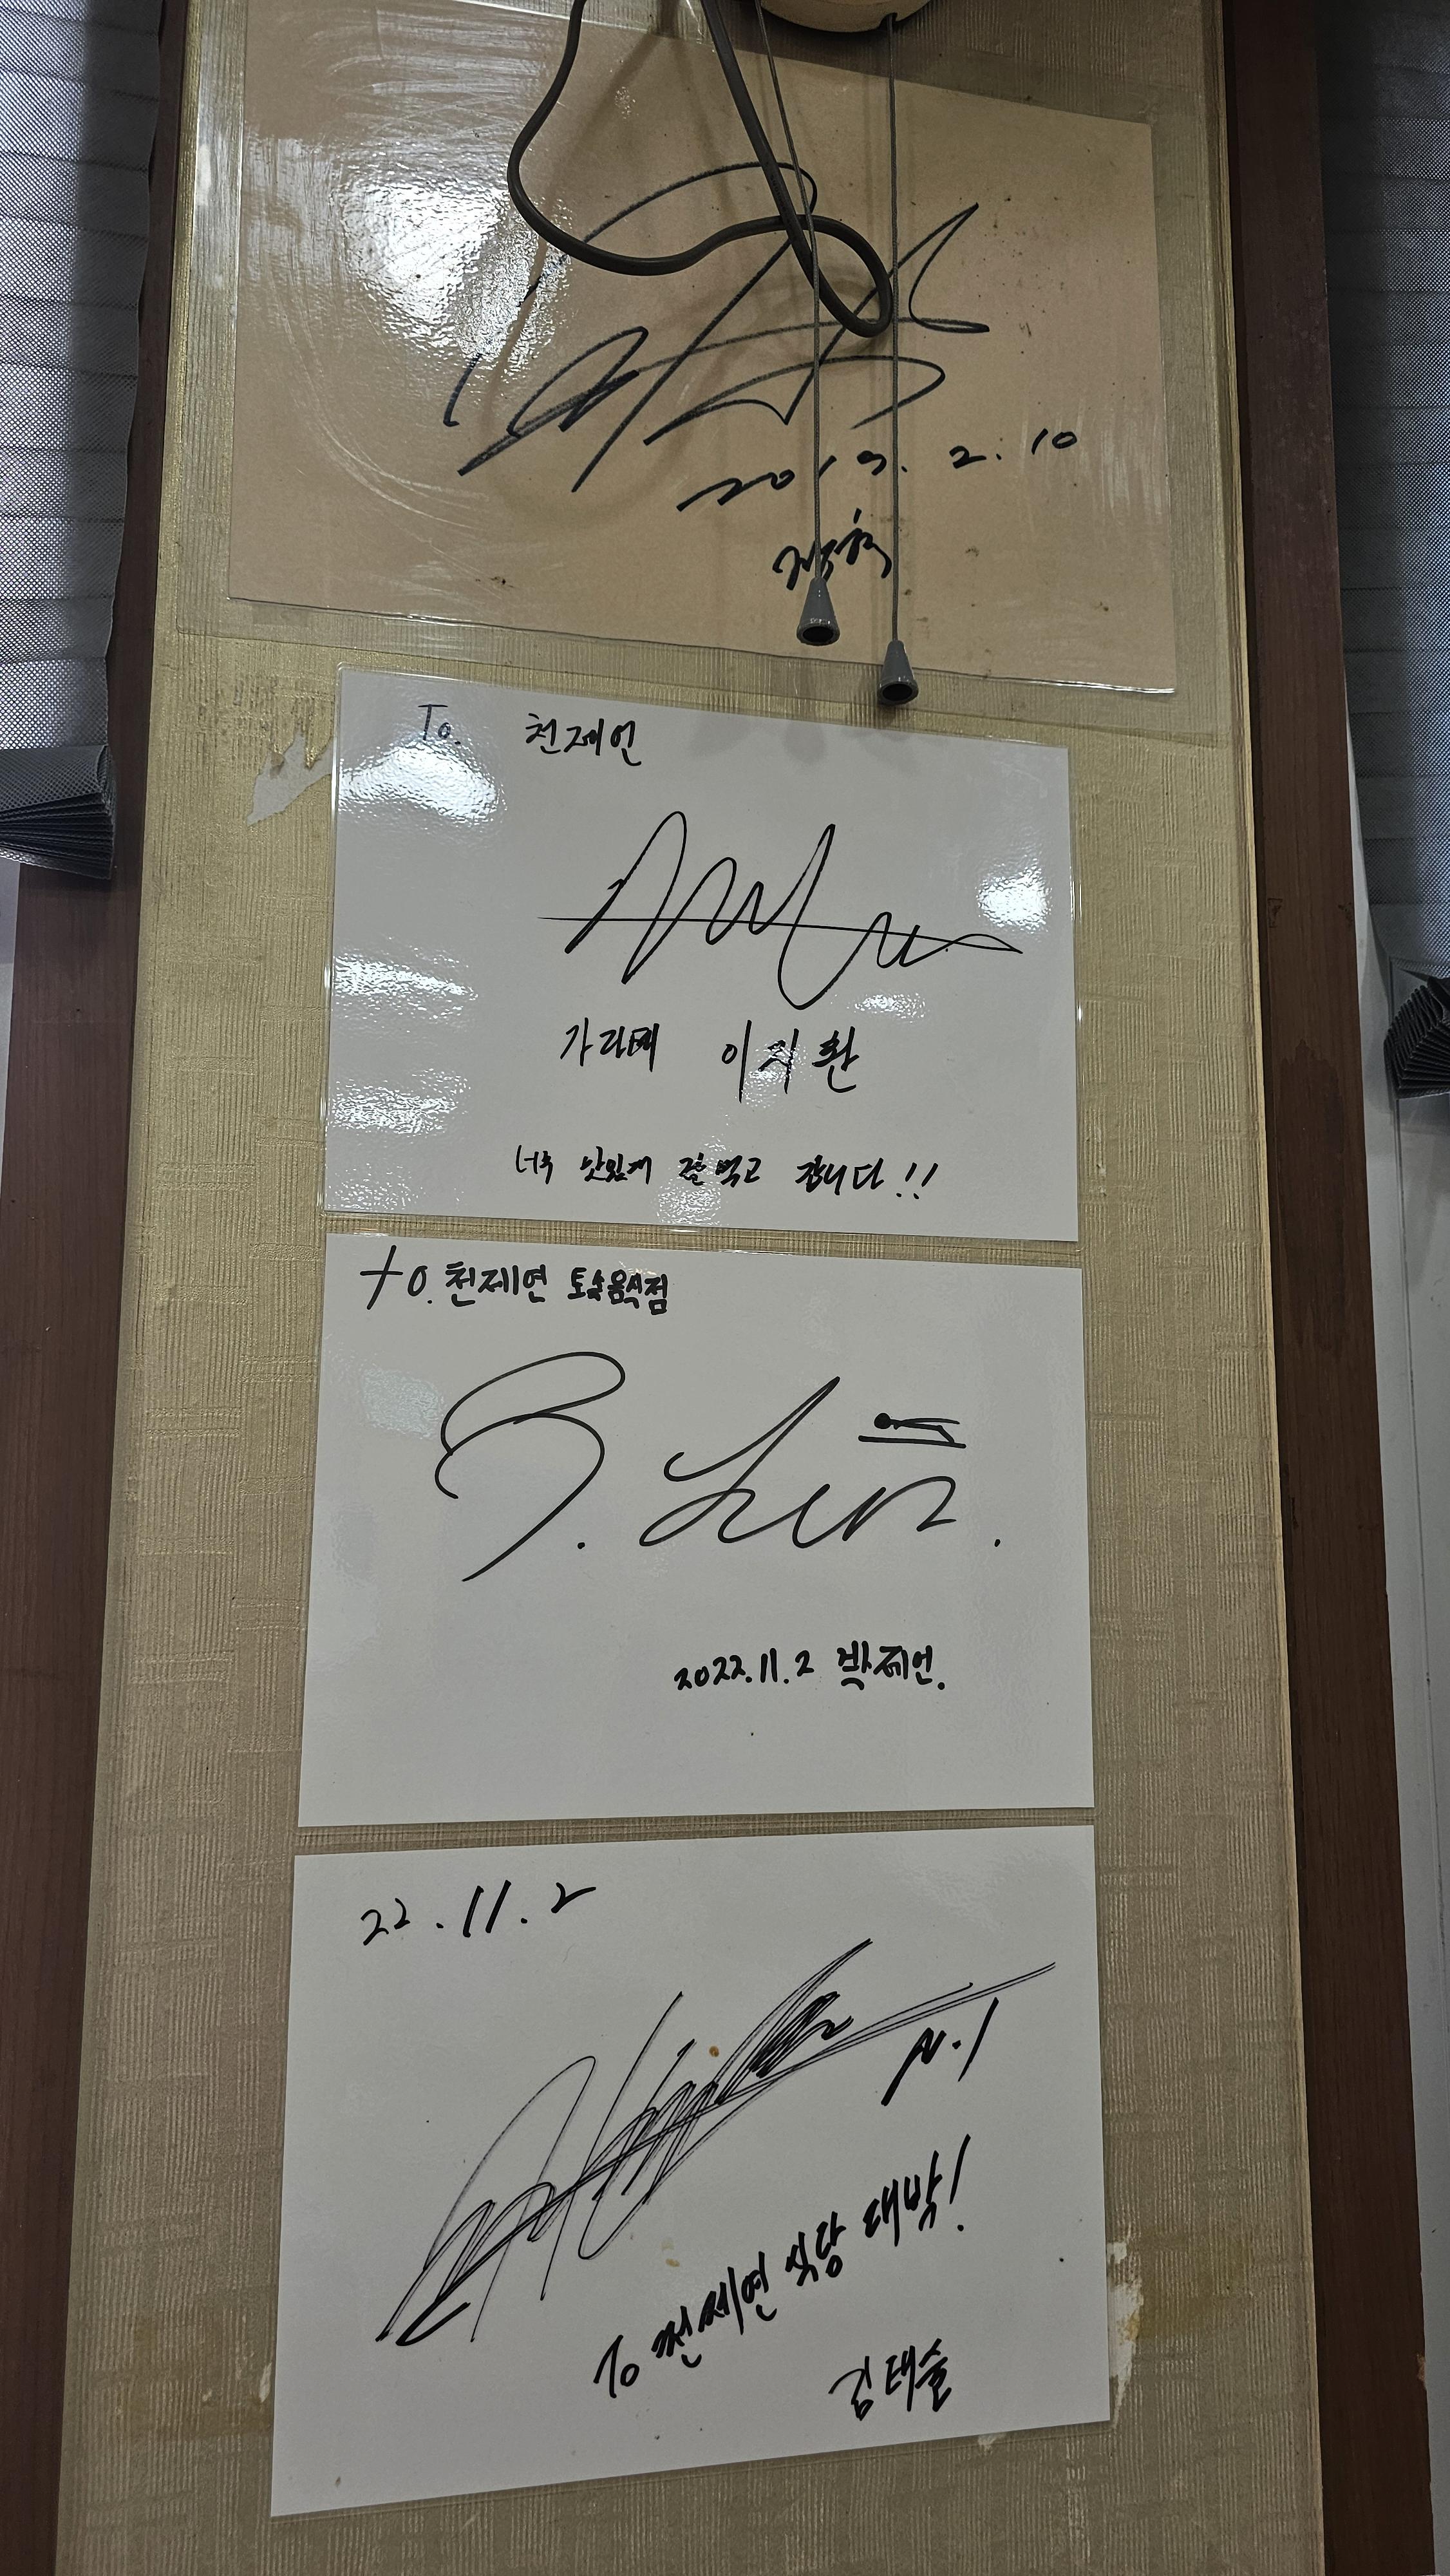 2019. 2. 10
To. 천제언
가라테 이지환
너무 맛있게 잘 먹고 갑니다!!
to. 천제연 토속음식점
2022.11.2 박제언.
22.11.2
N.1
To 천제연 식당 대박!
김태술